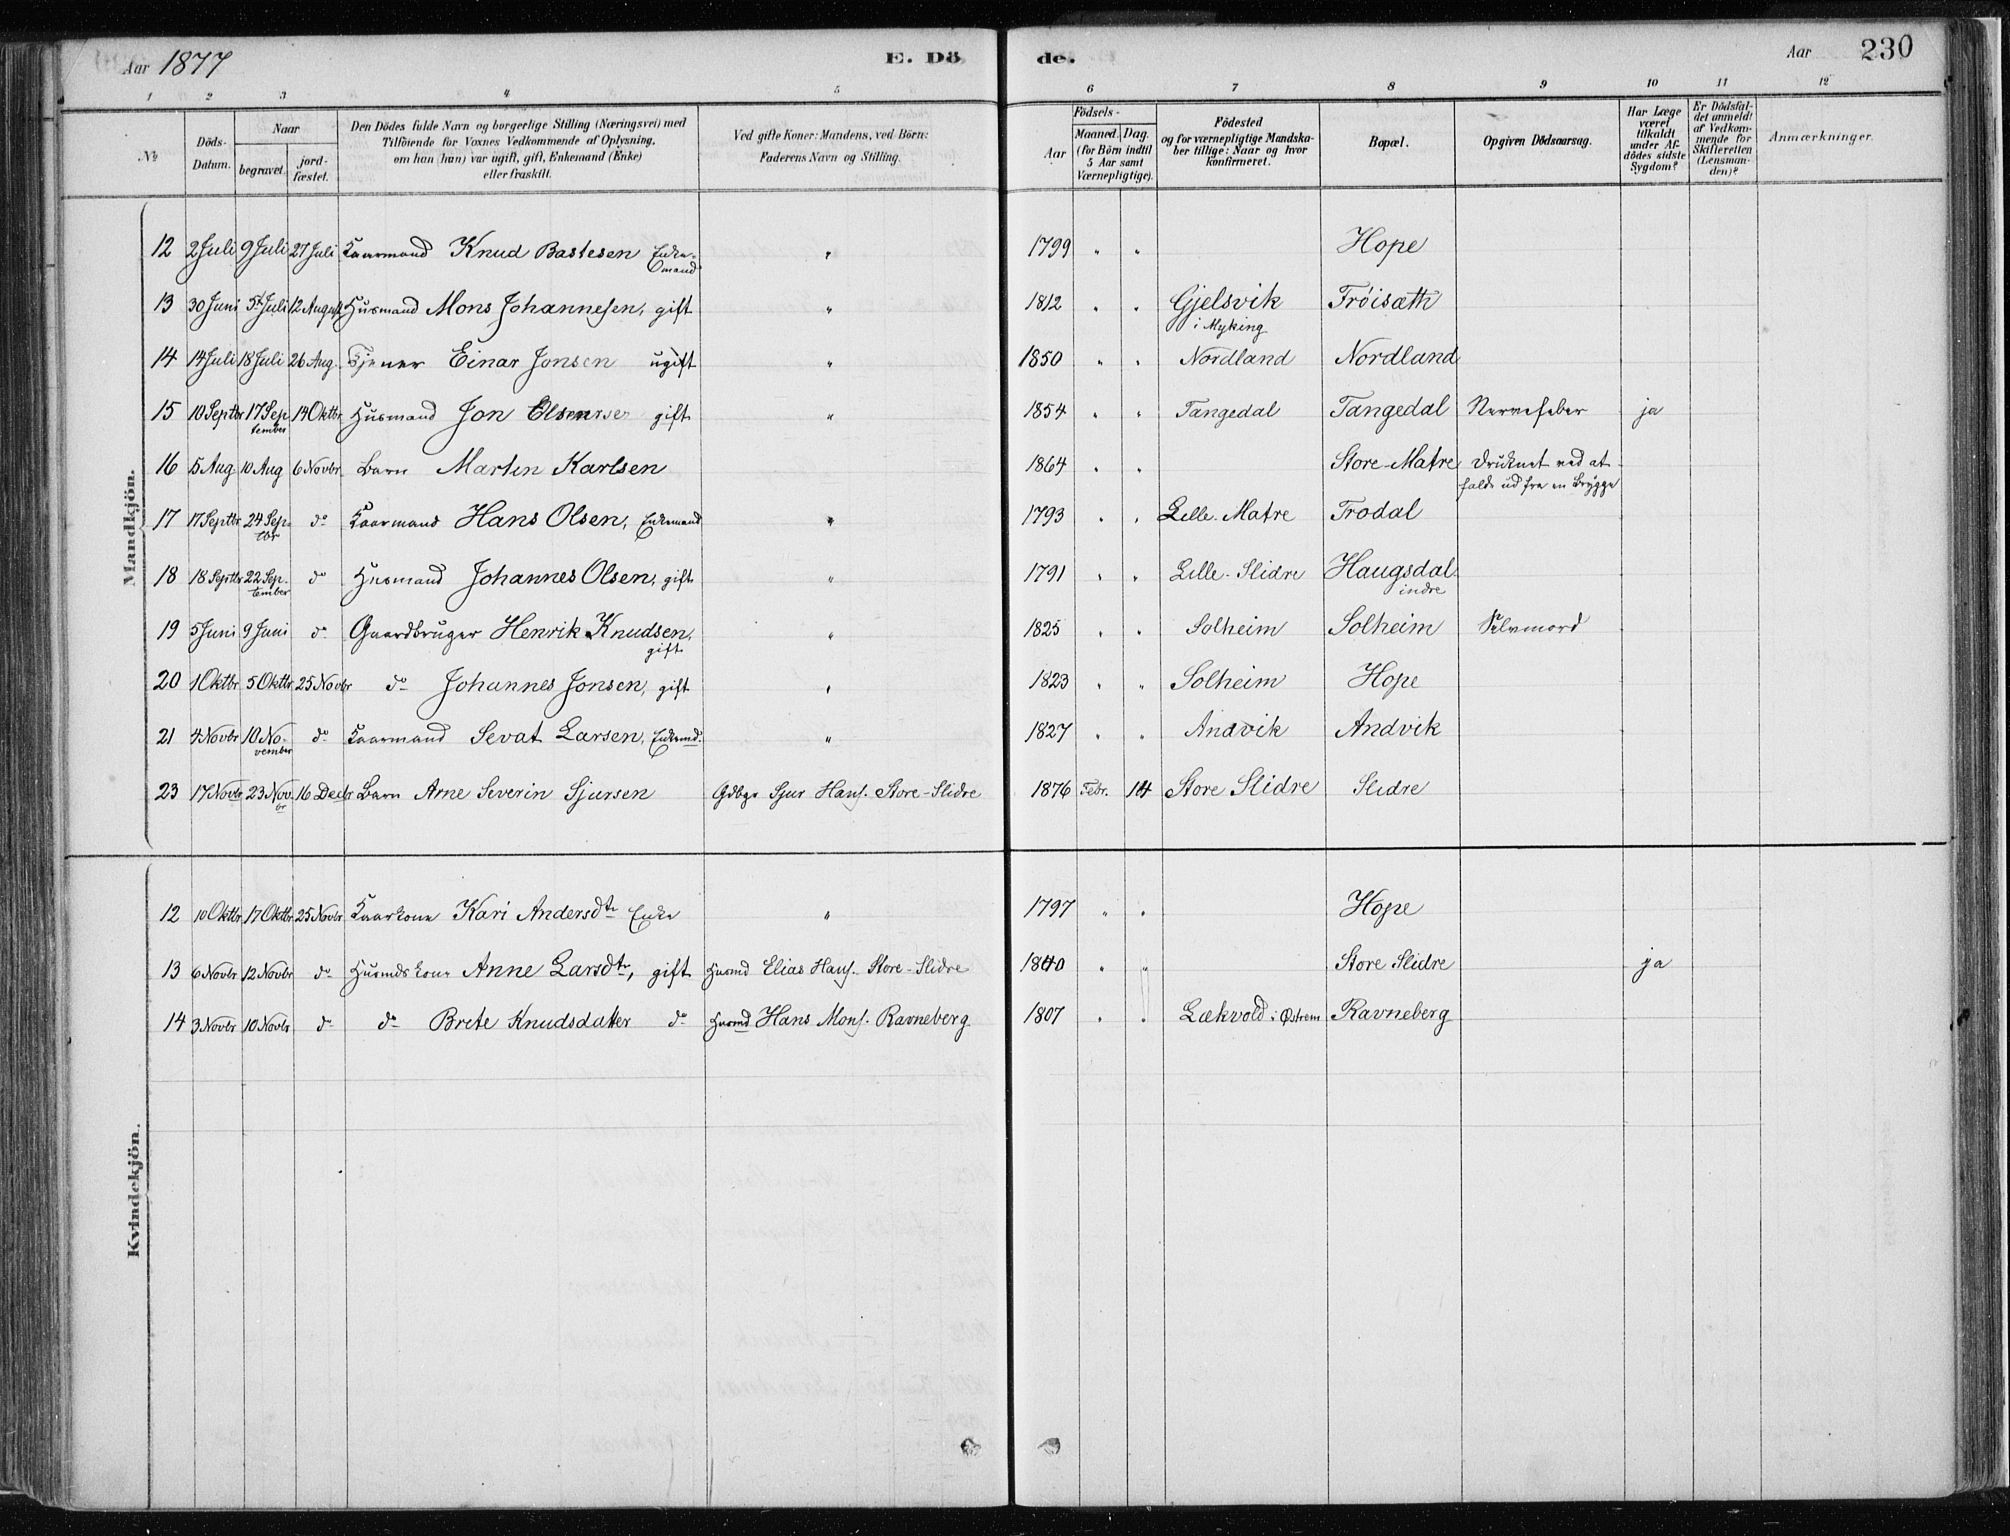 Aar 1877
E. Dö
de.
Aar
230
1 2 3 4 5
6 7 8 9 10 11 12
№
Döds-
Datum.
Naar
begravet.
jord-
fæstet.
Den Dödes fulde Navn og borgerlige Stilling (Næringsvei) med
Tilföiende for Voxnes Vedkommende af Oplysning,
om han (hun) var ugift, gift, Enkemand (Enke)
eller fraskilt.
Ved gifte Koner: Mandens, ved Börn:
Faderens Navn og Stilling.
Födsels-
Aar
Maaned.
Dag.
(for Börn indtil
5 Aar samt
Værnepligtige).
Födested
og for værnepligtige Mandska-
ber tillige: Naar og hvor
konfirmeret.
Bopæl.
Opgiven Dödsaarsag.
Har Læge
været
tilkaldt
under Af-
dödes sidste
Sygdom?
Er Dödsfal-
det anmeldt
af Vedkom-
mende for
Skifteretten
(Lensman-
den)?
Anmærkninger.
Mandkjön.
12 2 Juli 9 Juli 27 Juli Kaarmand Knud Bastesen Enke-
mand " 1799 " " Hope
13 30 Juni 5 Juli 12 August Husmand Mons Johannesen, gift " 1812 " " Gjelsvik Trøisæth
i Myking
14 14 Juli 18 Juli 26 Aug. Tjener Einar Jonsen ugift " 1850 " " Nordland Nordland
15 10 Septbr 17 Sep
tember 14 Oktbr. Husmand Jon Olsen gift " 1854 " " Tangedal Tangedal Nervefeber ja
16 5 Aug 10 Aug 6 Novbr. Barn Martin Karlsen 1864 " " Store-Matre Druknet ved at
falde ud fra en Brygge
17 17 Septbr 24 Sep-
tbr do Kaarmand Hans Olsen, Enkemand " 1793 " " Lille-Matre Trodal
18 18 Septbr 22 Sep-
tember do Husmand Johannes Olsen, gift " 1791 " " Lille-Slidre Haugsdal
indre
19 5 Juni 9 Juni do Gaardbruger Henrik Knudsen,
gift " 1825 " " Solheim Solheim Selvmord
20 1 Oktbr 5 Oktbr 25 Novbr do Johannes Jonsen, gift " 1823 " " Solheim Hope
21 4 Novbr 10 No-
vember do Kaarmand Sevat Larsen, Enkemd. " 1827 " " Andvik Andvik
23 17 Novbr 23 Nov
br 16 Decbr Barn Arne Severin Sjursen Gdbgr Sjur Hans. Store-Slidre 1876 Febr. 14 Store Slidre Slidre
Kvindekjön.
12 10 Oktbr 17 Oktbr 25 Novbr Kaarkone Kari Andersdtr Enke " 1797 " " Hope
13 6 Novbr 12 Novbr do Husmdskone Anne Larsdtr, gift Husmd Elias Hans. Store-Slidre 1840 " " Store Slidre ja
14 3 Novbr 10 Novbr do do Brete Knudsdatter do Husmd Hans Mons. Ravneberg 1807 " " Lækvold i Østrem Ravneberg